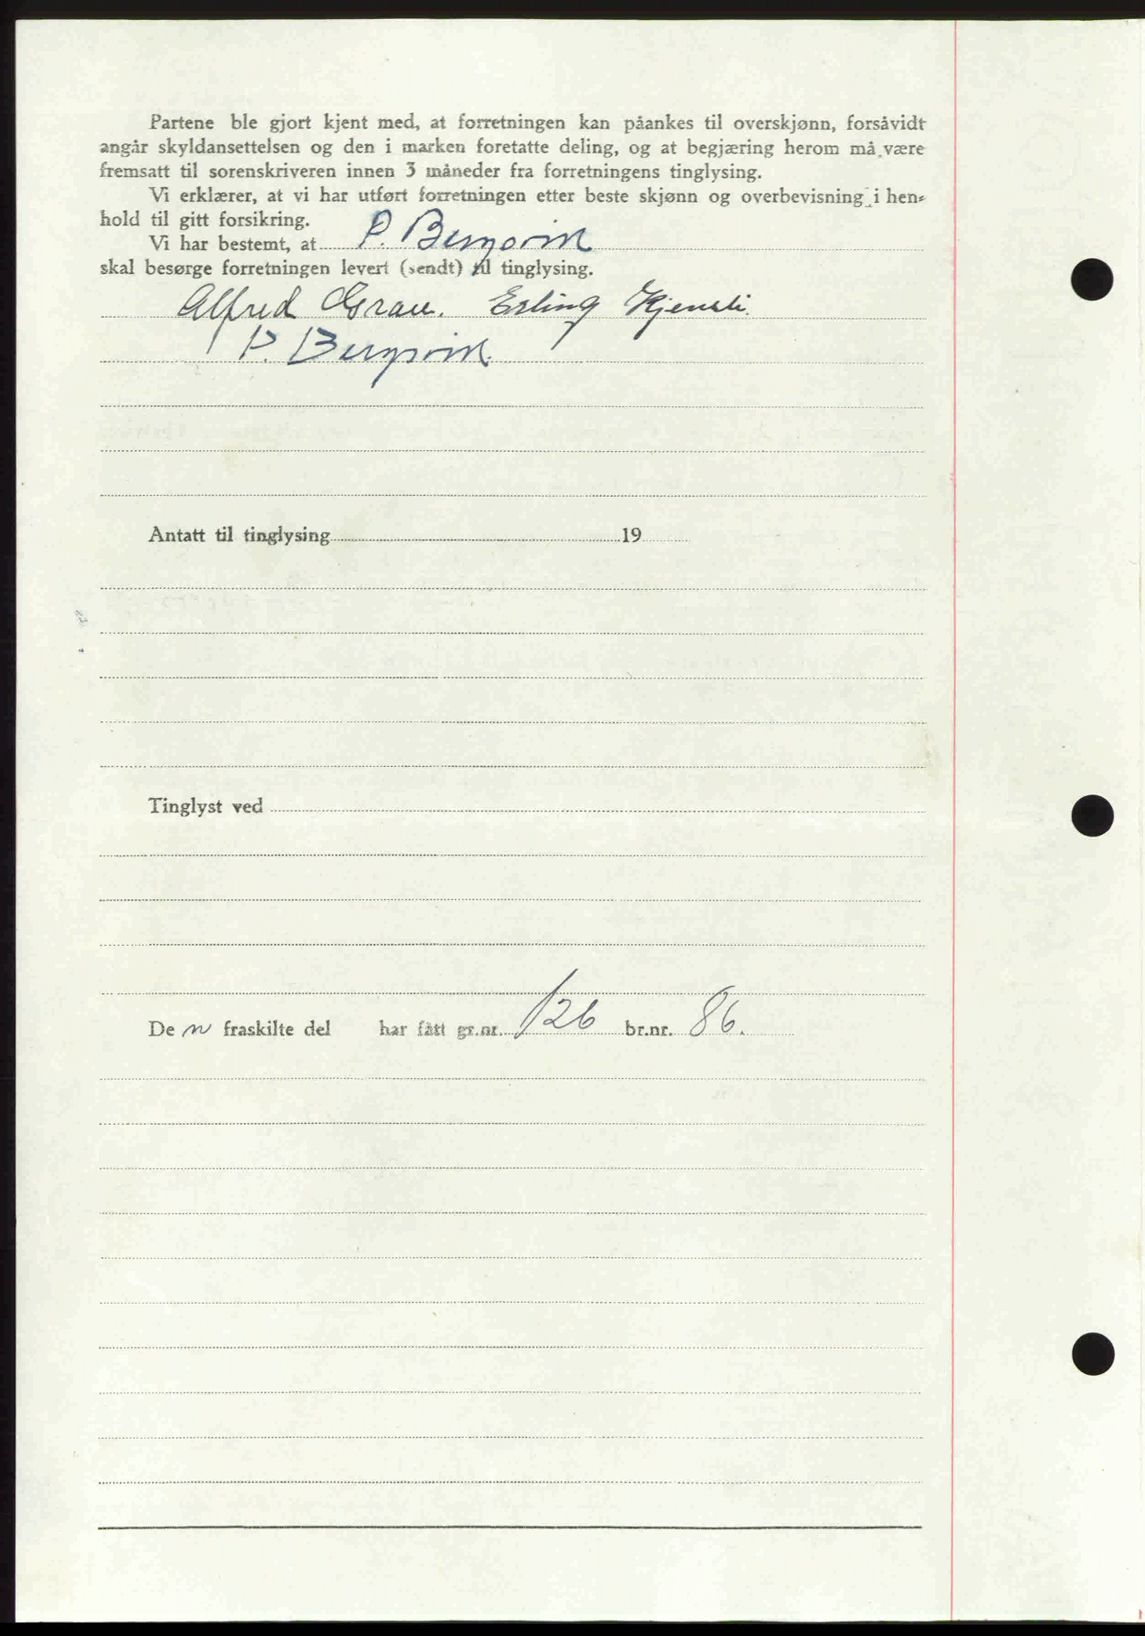 Partene ble gjort kjent med, at forretningen kan påankes til overskjønn, forsåvidt
angår skyldansettelsen og den i marken foretatte deling, og at begjæring herom må være
fremsatt til sorenskriveren innen 3 måneder fra forretningens tinglysing.
Vi erklærer, at vi har utført forretningen etter beste skjønn og overbevisning i hen-
hold til gitt forsikring.
Vi har bestemt, at P. Bergsvik
skal besørge forretningen levert (sendt) til tinglysing.
Alfred Grav. Erling Kjensli.
P. Bergsvik
Antatt til tinglysing 19
Tinglyst ved
De n fraskilte del har fått gr.nr. 126 br.nr. 86.